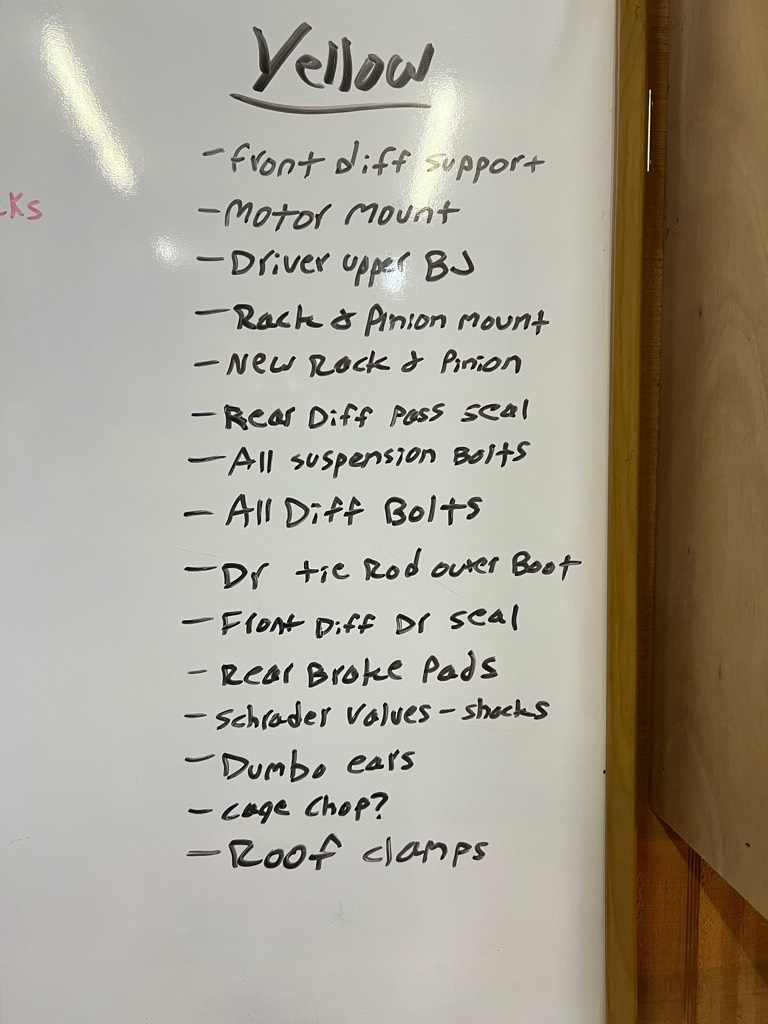 Yellow
- Front diff support
- Motor Mount
- Driver upper BJ
cks
- Rack & Pinion mount
- New Rack & Pinion
- Rear Diff Pass seal
- All suspension Bolts
- All Diff Bolts
- Dr tie Rod outer Boot
- Front Diff Dr seal
- Rear Brake Pads
- Schrader Valves - shocks
- Dumbo ears
- Cage Chop?
- Roof clamps